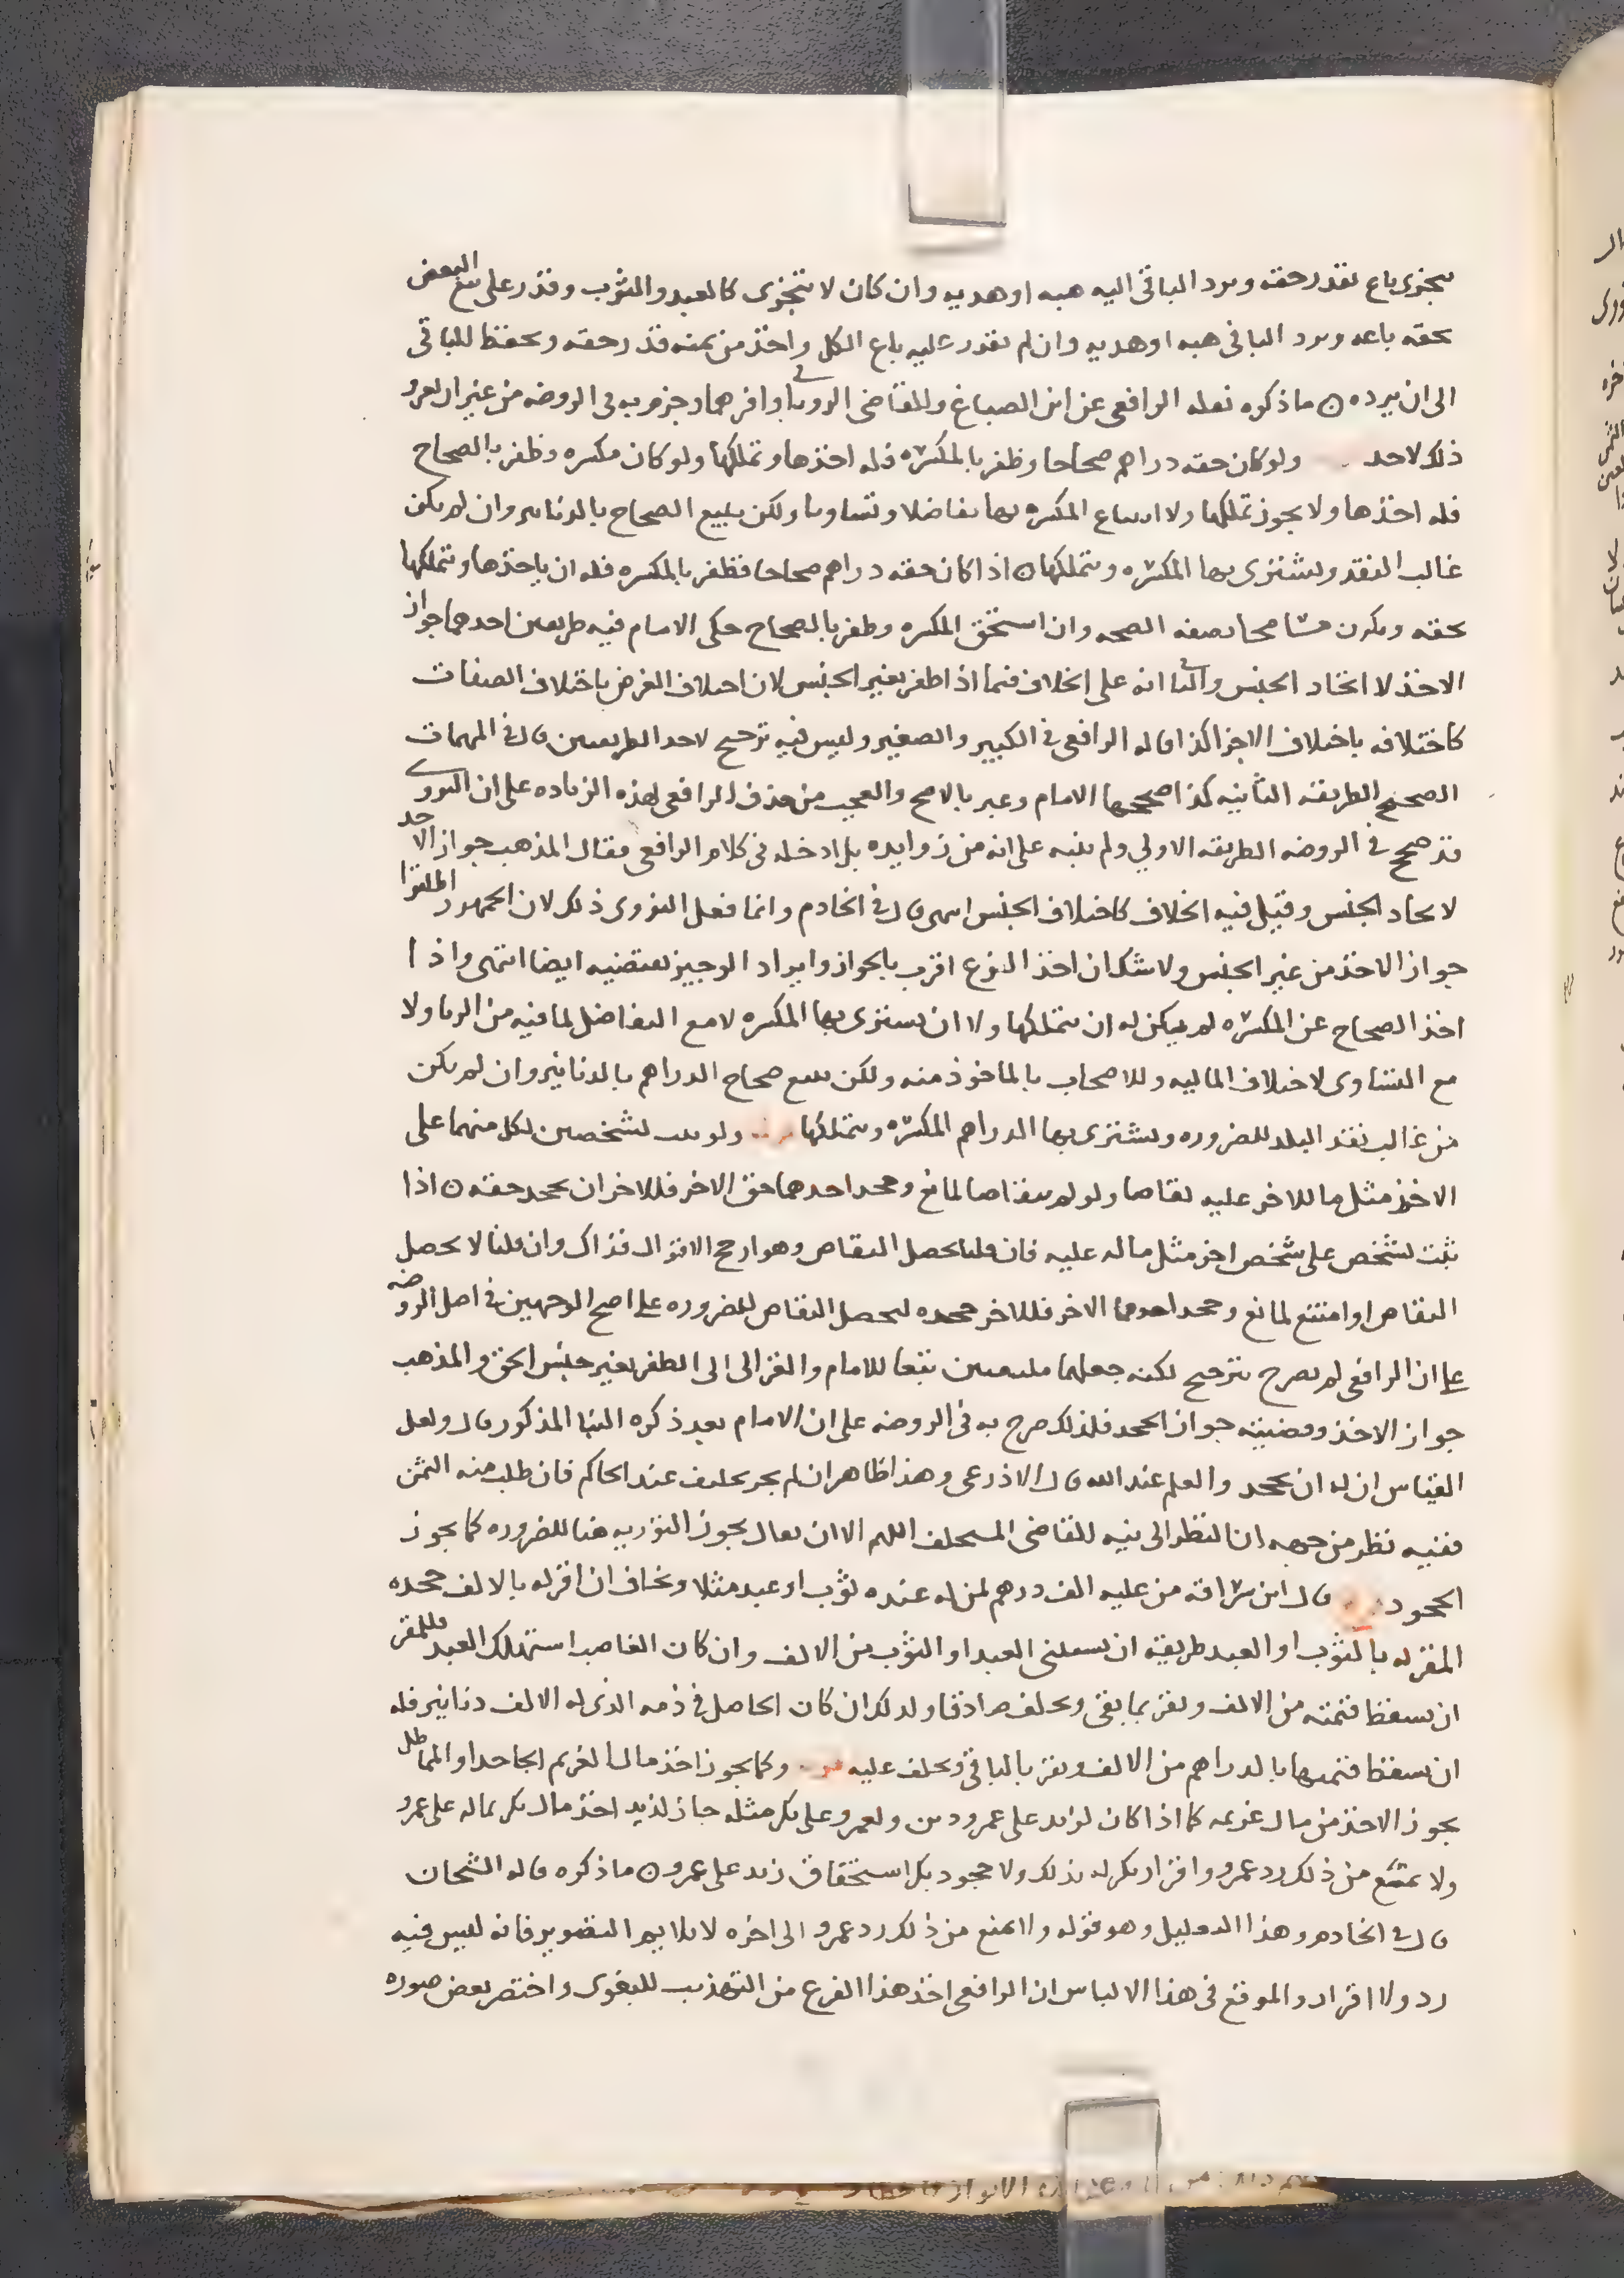 يتجزى باع بقدر حقه ويرد الباقى اليه هبه او هديه وان كان لا يتجزى كالعبد والثوب وقدر على بيع البعض
بحقه باعه ويرد الباقى هبه او هديه وان لم يقدر عليه باع الكل واخذ من ثمنه قدر حقه ويحفظ الباقى
الى ان يرده ما ذكره نقله الرافعى عن ابن الصباغ والقاضى الرويانى واقرهما وجزم به فى الروضه من غير ان يعزو
ذلك لاحد ولو كان حقه دراهم صحاحا وظفر بالمكسره فله اخذها وتملكها ولو كان مكسره وظفر بالصحاح
فله اخذها ولا يجوز تملكها ولا ابتياع المكسره بها تفاضلا وتساويا ولكن يبيع الصحاح بالدنانير وان لم يكن
غالب النقد ويشترى بها المكسره ويتملكها اذا كان حقه دراهم صحاحا فظفر بالمكسره فله ان ياخذها ويتملكها
بحقه ويكون مسامحا بصفه الصحه وان استحق المكسره وظفر بالصحاح حكى الامام فيه طريقين احدهما جواز
الاخذ لاتحاد الجنس والثانى انه على الخلاف فيما اذا ظفر بغير الجنس لان اختلاف الغرض باختلاف الصفات
كاختلافه باختلاف الاجزا كذا قاله الرافعى فى الكبير والصغير وليس فيه ترجيح لاحد الطريقين قال فى المهمات
الصحيح الطريقه الثانيه كذا صححها الامام وعبر بالاصح والعجب من حذف الرافعى لهذه الزياده على ان النووى
قد صحح فى الروضه الطريقه الاولي ولم ينبه على انه من زوايده بل ادخله فى كلام الرافعى فقال المذهب جواز الاخذ
لاتحاد الجنس وقيل فيه الخلاف كاختلاف الجنس انتهى قال فى الخادم وانما فعل النووى ذلك لان الجمهور
جواز الاخذ من غير الجنس ولا شك ان اخذ النوع اقرب بالجواز وايراد الوجيز يقتضيه ايضا انتهى واذا
اخذ الصحاح عن المكسره لم يمكن له ان يتملكها ولا ان يشترى بها المكسره لا مع التفاضل لما فيه من الربا ولا
مع التساوى لاختلاف الماليه وللاصحاب بالماخوذ منه ولكن يبيع صحاح الدراهم بالدنانير وان لم يكن
من غالب نقد البلد للضروره ويشترى بها الدراهم المكسره ويتملكها ولو ثبت لشخصين لكل منهما على
الاخر مثل ما للاخر عليه تقاصا ولو لم يتقاصا لمانع وجحد احدهما حق الاخر فللاخر ان يجحد حقه اذا
ثبت لشخص على شخص اخر مثل ما له عليه فان قلنا يحصل التقاص وهو ارجح الاقوال فذاك وان قلنا لا يحصل
التقاص او امتنع لمانع وجحد احدهما الاخر فللاخر جحده ليحصل التقاص للضروره على اصح الوجهين فى اصل الروضه
على ان الرافعى لم يصرح بترجيح لكنه جعلهما تبعا للامام والغزالى الى الظفر بغير جنس الحق والمذهب
جواز الاخذ وقضيته جواز الجحد فلذلك صرح به فى الروضه على ان الامام بعد ذكره البنا المذكور قال ولعل
القياس ان له ان يجحد والعلم عند الله قال الاذرعى وهذا ظاهر ان لم يجر تحليف عند الحاكم فان طلب منه الثمن
ففيه نظر من جهه ان النظر الى نيه القاضى المستحلف اللهم الا ان يقال يجوز التوريه هنا للضروره كما يجوز
الجحود قال ابن سراقه من عليه الف درهم لمن له عنده ثوب او عبد مثلا ويخاف ان اقر له بالالف جحده
المقر له بالثوب او العبد طريقه ان يستثنى العبد او الثوب من الالف وان كان الغاصب استهلك العبد فللمقر
ان يسقط قيمته من الالف ويقر بما بقى ويحلف صادقا وكذلك ان كان الحاصل فى ذمه الذى له الالف دنانير فله
ان يسقط قيمتها بالدراهم من الالف ويقر بالباقى ويحلف عليه وكما يجوز اخذ مال الغريم الجاحد او المماطل
يجوز الاخذ من مال غريمه كما اذا كان لزيد على عمرو دين ولعمرو على بكر مثله جاز لزيد اخذ مال بكر بماله على عمرو
ولا يمتنع من ذلك رد عمرو واقرار بكر له بذلك ولا جحود بكر استحقاق زيد على عمرو ما ذكره قاله الشيخان
قال فى الخادم وهذا الدليل وهو قوله ولا يمتنع من ذلك رد عمرو الى اخره لا يلايم التصوير فانه ليس فيه
رد ولا اقرار والموقع فى هذا الالباس ان الرافعى اخذ هذا الفرع من التهذيب للبغوى واختصر بعض صوره